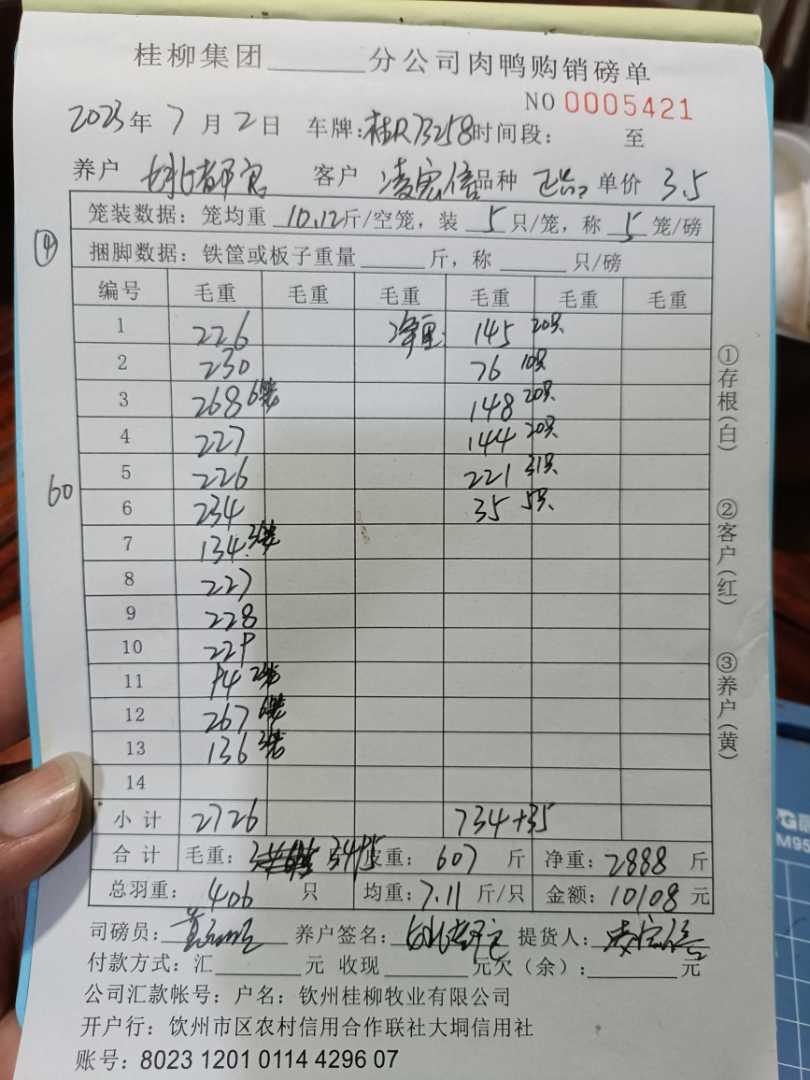 桂柳集团______分公司肉鸭购销磅单
NO 0005421
2023年 7月2日 车牌:桂R73258 时间段: 至
养户 客户 凌宏信 品种 正品 单价 3.5
笼装数据:笼均重 10.12 斤/空笼,装 5 只/笼,称 5 笼/磅
④ 捆脚数据:铁筐或板子重量______斤,称______只/磅
编号 毛重 毛重 毛重 毛重 毛重 毛重
1 226 净重: 145 20只
2 230 76 10只
3 268 6笼 148 20只
4 227 144 20只
5 226 221 31只
60
6 234 35 5只
7 134 3笼
8 227
9 228
10 229
11 94 2笼
12 267 6笼
13 136 3笼
14
小计 2726 734+35
合计 毛重: 3495 皮重: 607 斤 净重: 2888 斤
总羽重: 406 只 均重: 7.11 斤/只 金额: 10108 元
司磅员: 养户签名: 提货人: 凌宏信
付款方式:汇______元 收现______元欠(余):______元
公司汇款帐号:户名:钦州桂柳牧业有限公司
开户行:钦州市区农村信用合作联社大垌信用社
账号:8023 1201 0114 4296 07
①存根(白)
②客户(红)
③养户(黄)